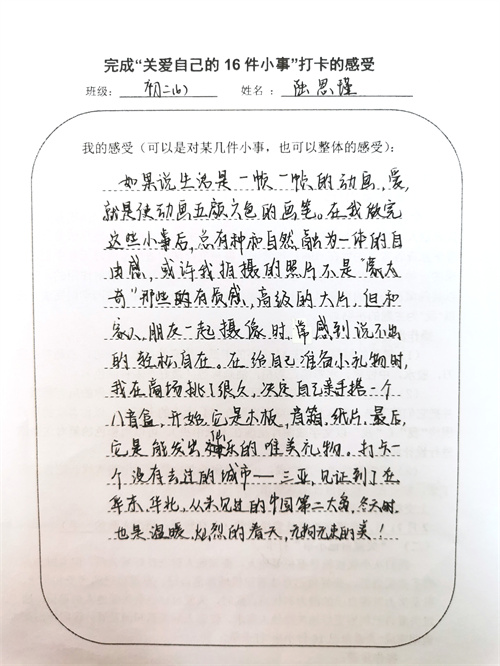 完成“关爱自己的16件小事”打卡的感受
班级： 初二(6) 姓名： 陆思瑾
我的感受（可以是对某几件小事，也可以整体的感受）：
如果说生活是一帧一帧的动画，爱，
就是使动画五颜六色的画笔。在我做完
这些小事后，总有种和自然融为一体的自
由感，或许我拍摄的照片不是“蒙太
奇”那些的有质感，高级的大片，但和
家人，朋友一起摄像时，常感到说不出
的轻松自在。在给自己准备小礼物时，
我在商场挑了很久，决定自己亲手搭一个
八音盒，开始，它是木板，音箱，纸片，最后，
它是能发出乐的唯美礼物。打卡一
个没有去过的城市——三亚，见证到了在
华东，华北，从未见过的中国第二大岛，冬天时
也是温暖，灿烂的春天，无拘无束的美！